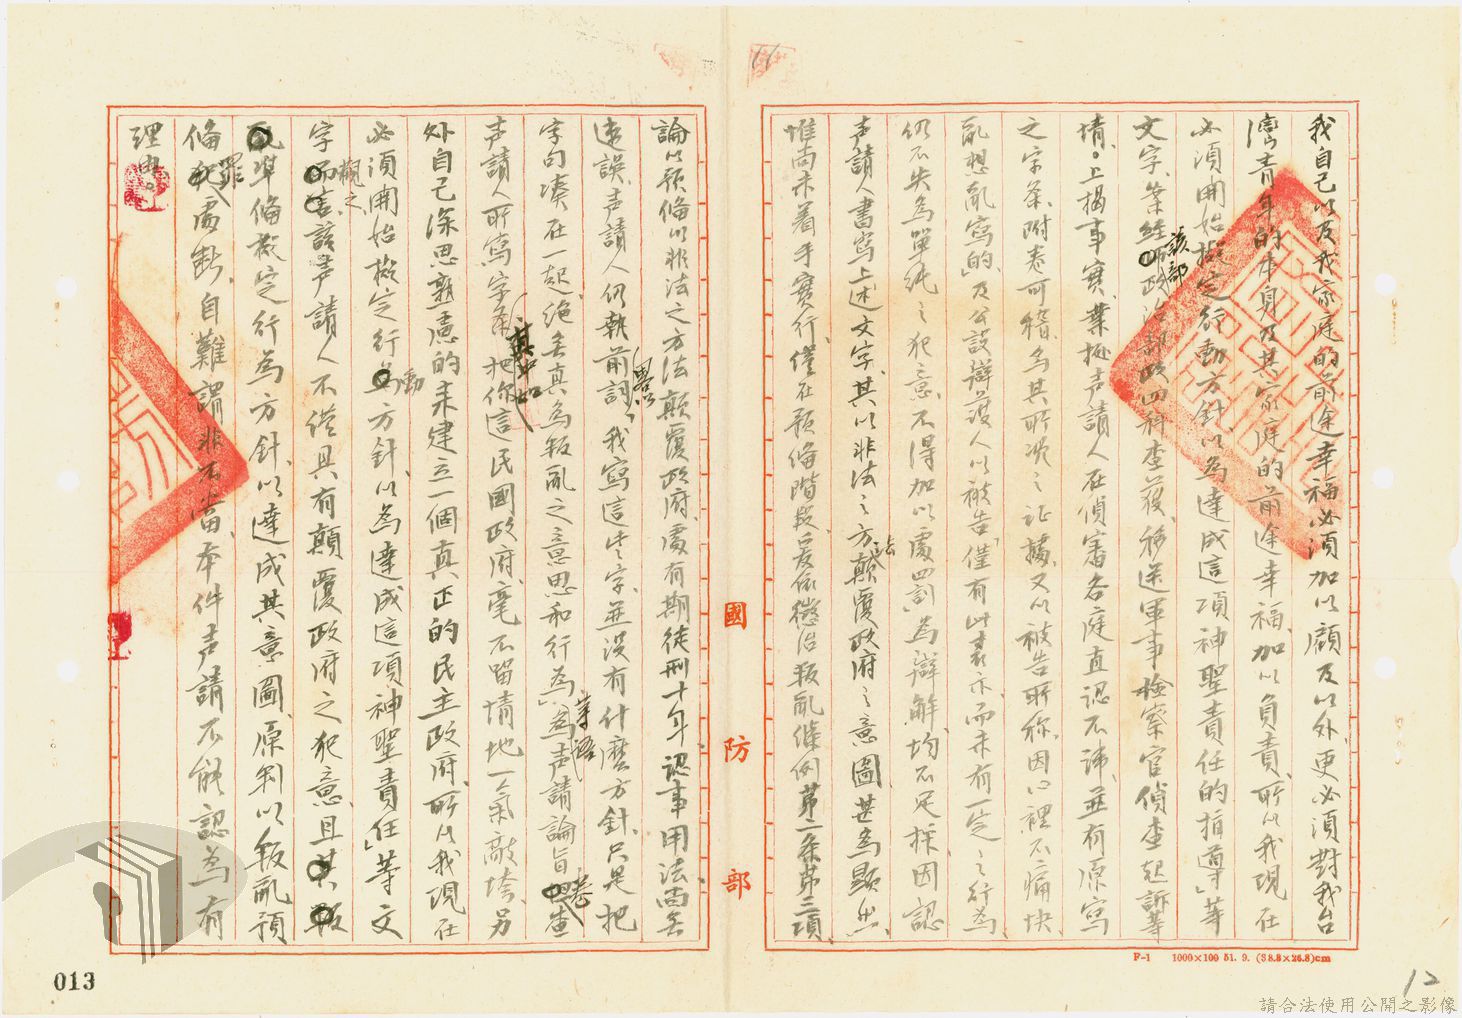 我自己以及我家庭的前途幸福必須加以顧及以外、更必須對我台
灣青年的本身及其家庭的前途幸福、加以負責、所以我現在
必須開始擬定行動方針、以為達成這項神聖責任的指導」等
文字、業經該部政治部政四科查獲、移送軍事檢察官偵查起訴等
情。上揭事實、業據声請人在偵審各庭直認不諱、並有原寫
之字条附卷可稽、為其所憑之証據、又以被告所称、因心裡不痛快、
亂想亂寫的、及公設辯護人以被告「僅有此表示、而未有一定之行為、
仍不失為單純之犯意、不得加以處罰」為辯解、均不足採、因認
声請人書寫上述文字、其以非法之方法顛覆政府之意圖甚為顯然、
惟尚未着手實行、僅在預備階段、爰依懲治叛亂條例第二条第三項、
論以預備以非法之方法顛覆政府、處有期徒刑十年、認事用法尚無
違誤、声請人仍執前詞、畧以「我寫這些字、並沒有什麼方針、只是把
字句湊在一起、絕無真為叛亂之意思和行為」等語為声請論旨、查卷
声請人所寫字条其如「把你這民國政府、毫不留情地一氣敲垮、另
外自己深思熟慮的來建立一個真正的民主政府、所以我現在
必須開始擬定行動方針、以為達成這項神聖責任」等文
字觀之、該声請人不僅具有顛覆政府之犯意、且
準備擬定行為方針、以達成其意圖、原判以叛亂預
備罪處斷、自難謂非不當、本件声請不能認為有
理由。
國防部
F-1 1000×100 51. 9. (38.8×26.8)cm
11
12
013
請合法使用公開之影像